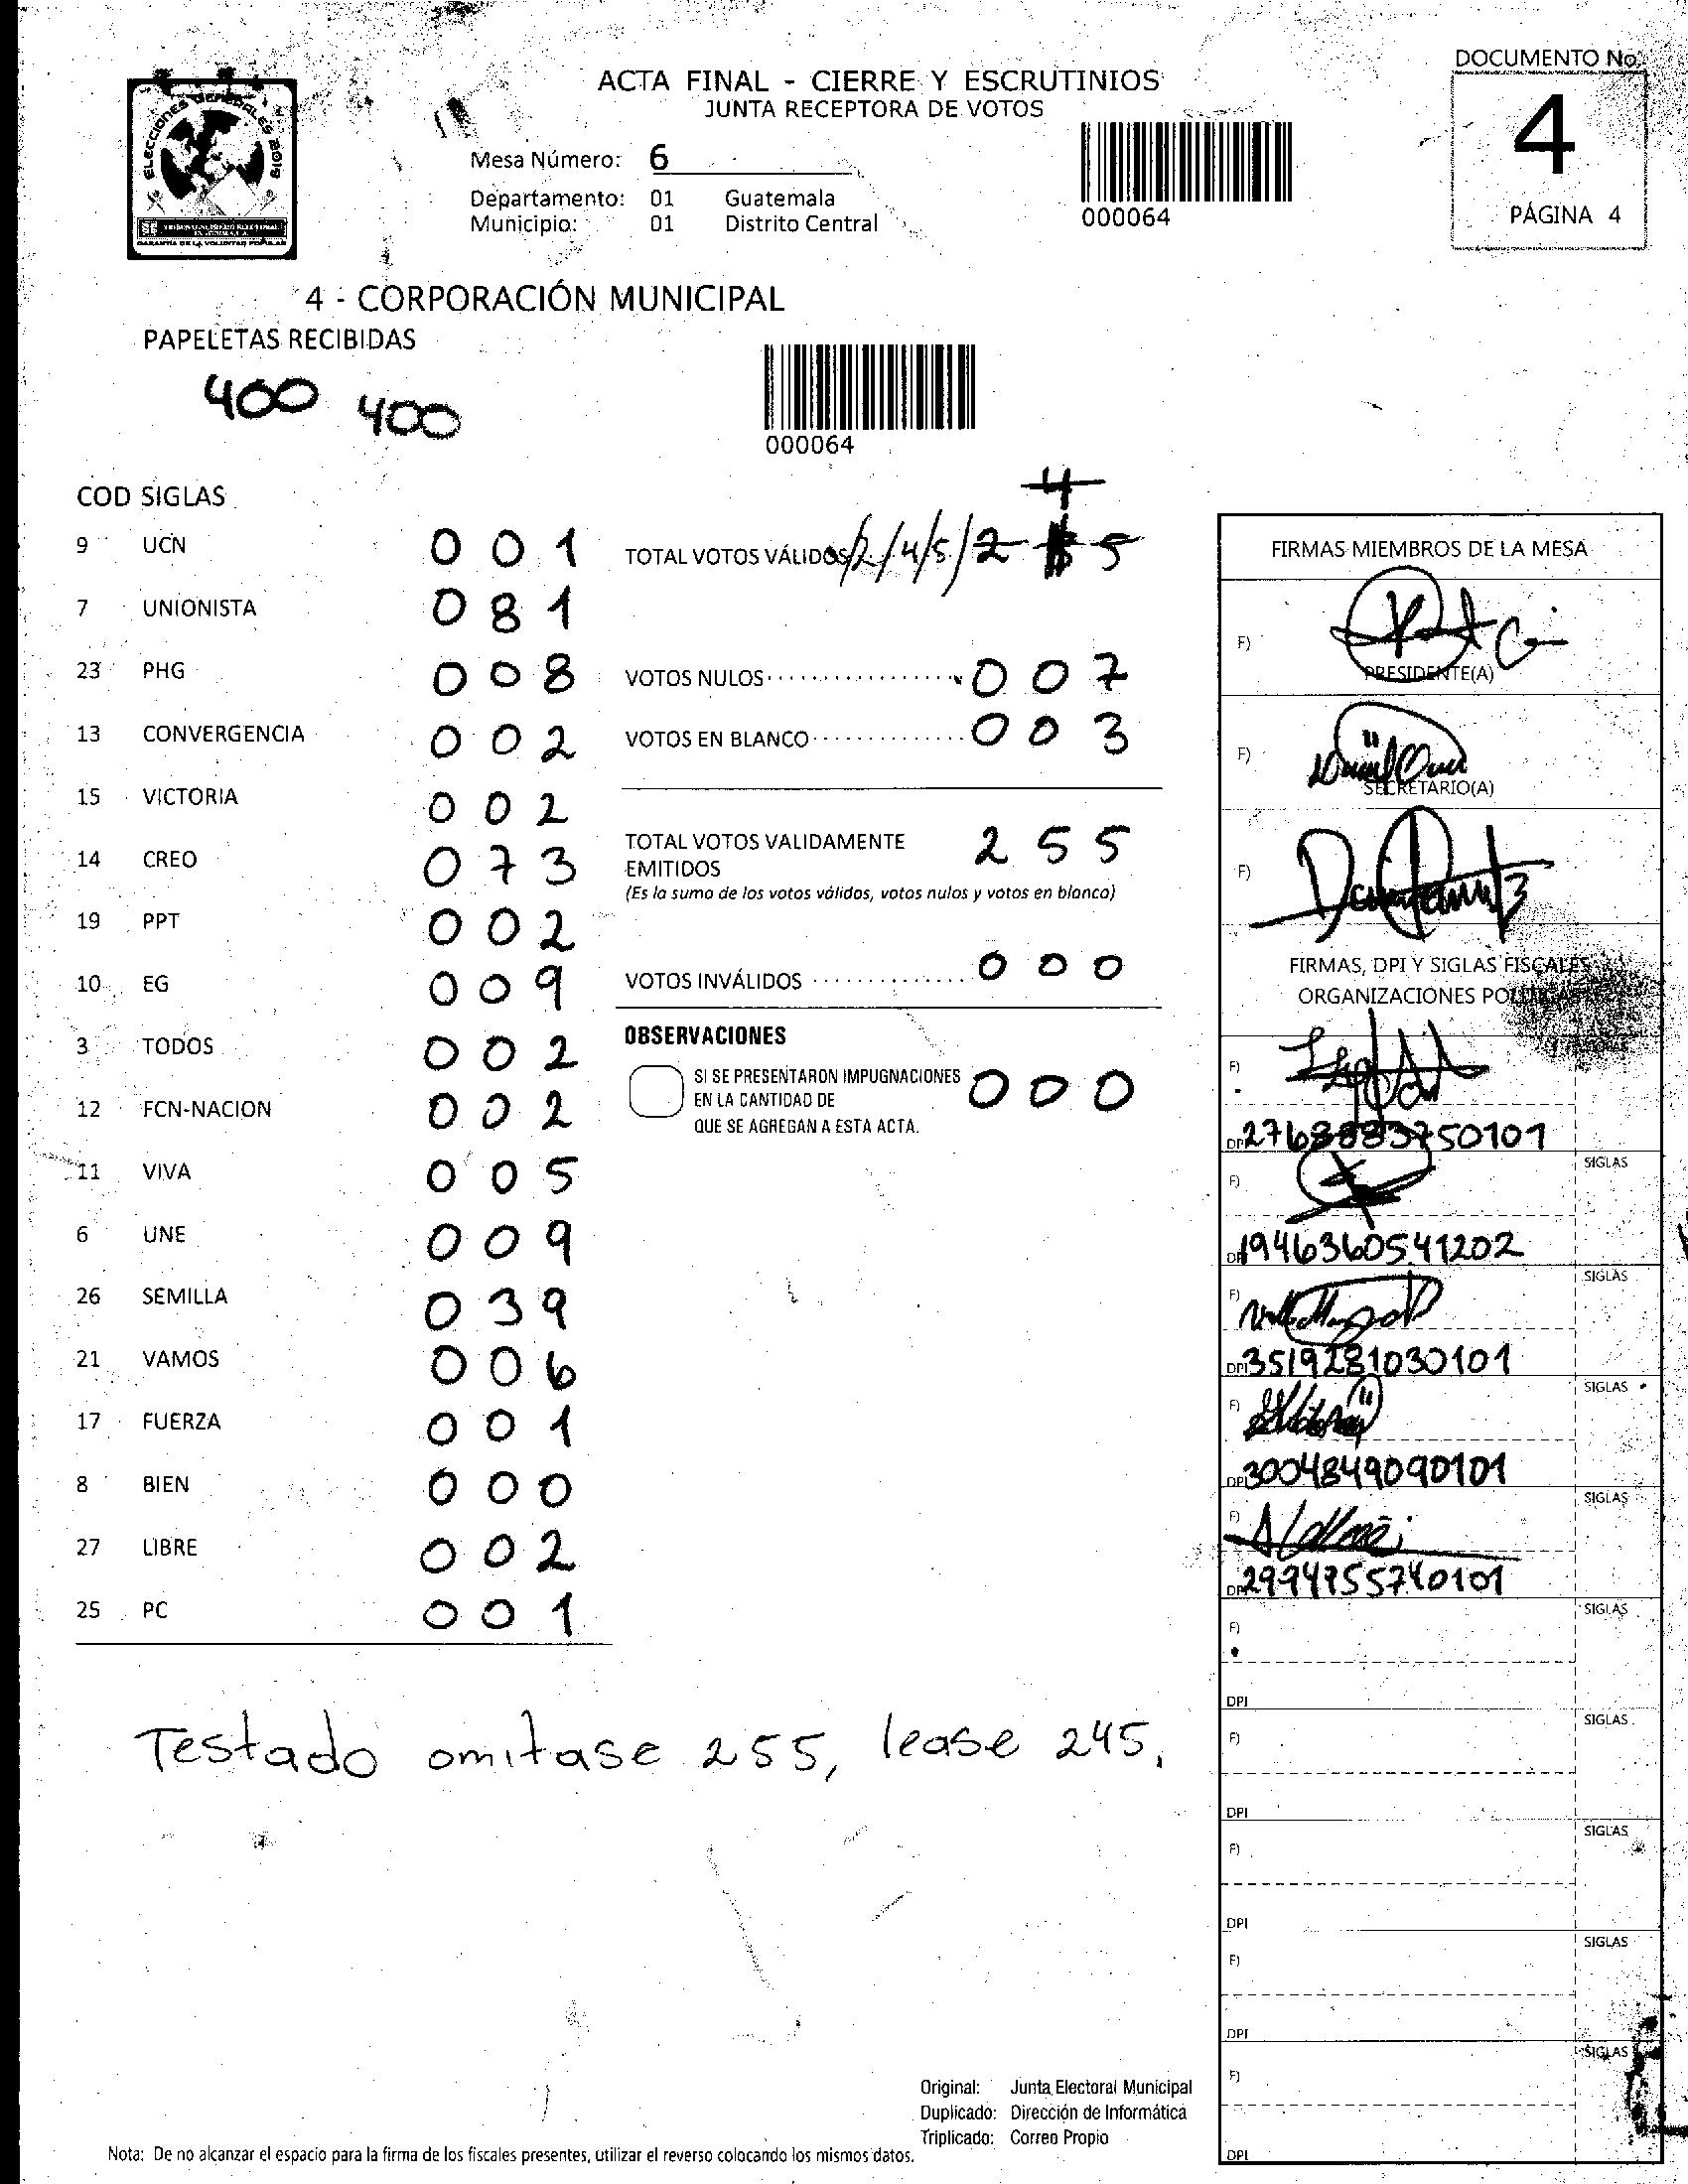 DOCUMENTO No.
ACTA FINAL - CIERRE Y ESCRUTINIOS
JUNTA RECEPTORA DE VOTOS
4
PÁGINA 4
ELECCIONES GENERALES 2019
Mesa Número: 6
Departamento: 01 Guatemala
Municipio: 01 Distrito Central
000064
4 - CORPORACIÓN MUNICIPAL
PAPELETAS RECIBIDAS
400 400
000064
COD SIGLAS
9 UCN 0 0 1
7 UNIONISTA 0 8 1
23 PHG 0 0 8
13 CONVERGENCIA 0 0 2
15 VICTORIA 0 0 2
14 CREO 0 7 3
19 PPT 0 0 2
10 EG 0 0 9
3 TODOS 0 0 2
12 FCN-NACION 0 0 2
11 VIVA 0 0 5
6 UNE 0 0 9
26 SEMILLA 0 3 9
21 VAMOS 0 0 6
17 FUERZA 0 0 1
8 BIEN 0 0 0
27 LIBRE 0 0 2
25 PC 0 0 1
4
TOTAL VOTOS VÁLIDOS /2/4/5/ 2 5
VOTOS NULOS 0 0 7
VOTOS EN BLANCO 0 0 3
TOTAL VOTOS VALIDAMENTE 2 5 5
EMITIDOS
(Es la suma de los votos válidos, votos nulos y votos en blanco)
VOTOS INVÁLIDOS 0 0 0
OBSERVACIONES
SI SE PRESENTARON IMPUGNACIONES 0 0 0
EN LA CANTIDAD DE
QUE SE AGREGAN A ESTA ACTA.
FIRMAS MIEMBROS DE LA MESA
F)
PRESIDENTE(A)
F)
SECRETARIO(A)
F)
FIRMAS, DPI Y SIGLAS FISCALES
ORGANIZACIONES POLÍTICAS
F)
DPI
SIGLAS
F)
DPI 1946360541202
SIGLAS
F)
DPI 3519281030101
SIGLAS
F)
DPI 3004849090101
SIGLAS
F)
DPI
SIGLAS
F)
DPI
SIGLAS
F)
DPI
SIGLAS
F)
DPI
SIGLAS
F)
DPI
SIGLAS
F)
DPI
Testado omitase 255, lease 245,
Original: Junta Electoral Municipal
Duplicado: Dirección de Informática
Triplicado: Correo Propio
Nota: De no alcanzar el espacio para la firma de los fiscales presentes, utilizar el reverso colocando los mismos datos.